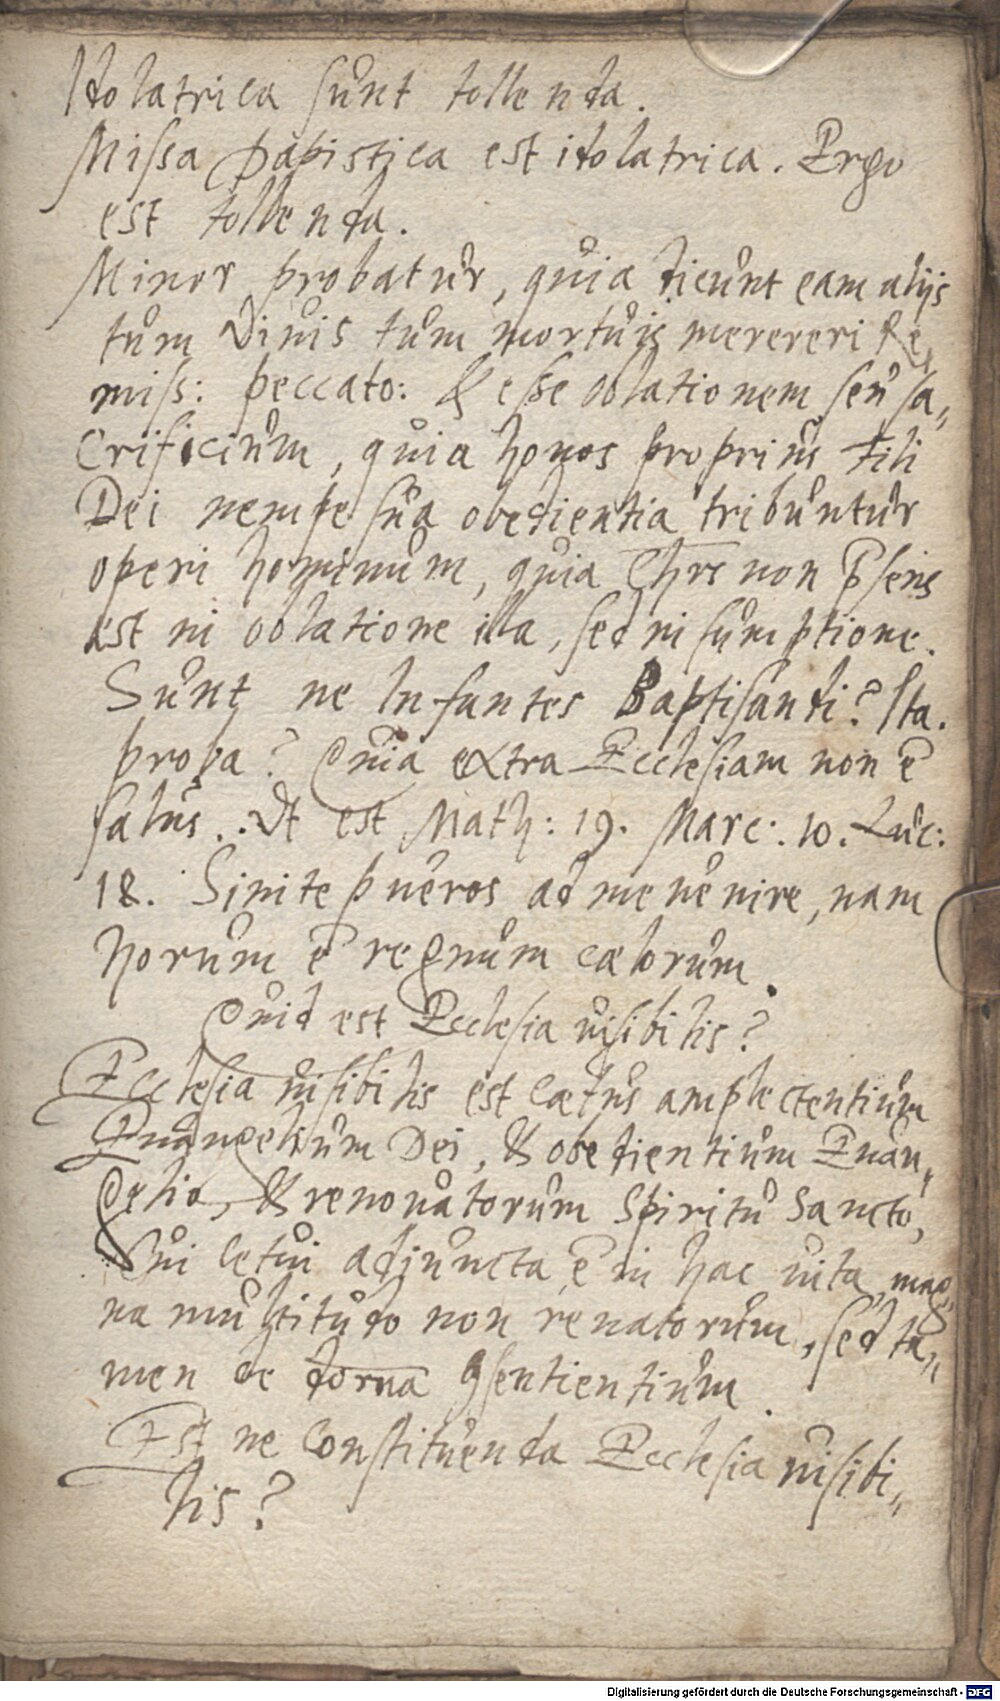 Idolatrica sunt tollenda.
Missa Papistica est idolatrica. Ergo
est tollenda.
Minor probatur, quia dicunt eam alijs
tum vivis tum mortuis merereri Re,,
miss: peccato: & esse oblationem seu sa,,
crificium, quia honos proprius Fili
Dei nempe sua obedientia tribuntur
operi hominum, quia Chrs non p̄sens
est in oblatione illa, sed in sumptione.
Sunt ne Infantes Baptisandi? Ita.
proba? Quia extra Ecclesiam non ē
salus. Vt est Math: 19. Marc: 10. Luc:
18. Sinite pueros ad me uenire, nam
horum ē regnum cælorum.
Quid est Ecclesia uisibilis?
Ecclesia uisibilis est cætus amplectentium
Euangelium Dei, & obedientium Euan,,
gelio, & renouatorum Spiritu Sancto,
Cui cetui adjuncta ē in hac uita mag,,
na multitudo non renatorum, sed ta,,
men de dorna 9sentientium.
Est ne constituenda Ecclesia uisibi,,
lis?
Digitalisierung gefördert durch die Deutsche Forschungsgemeinschaft - DFG